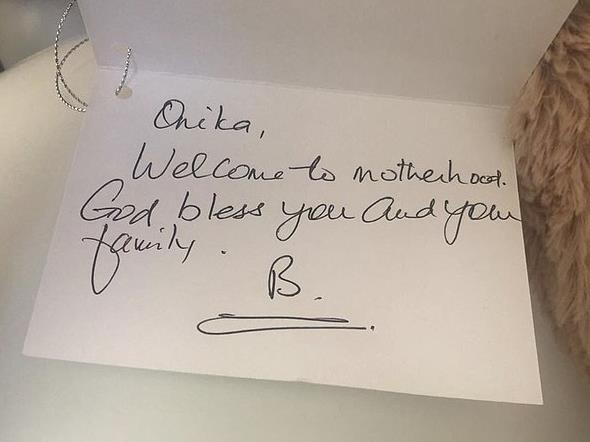 Onika,
Welcome to motherhood.
God bless you and your
family.
B.